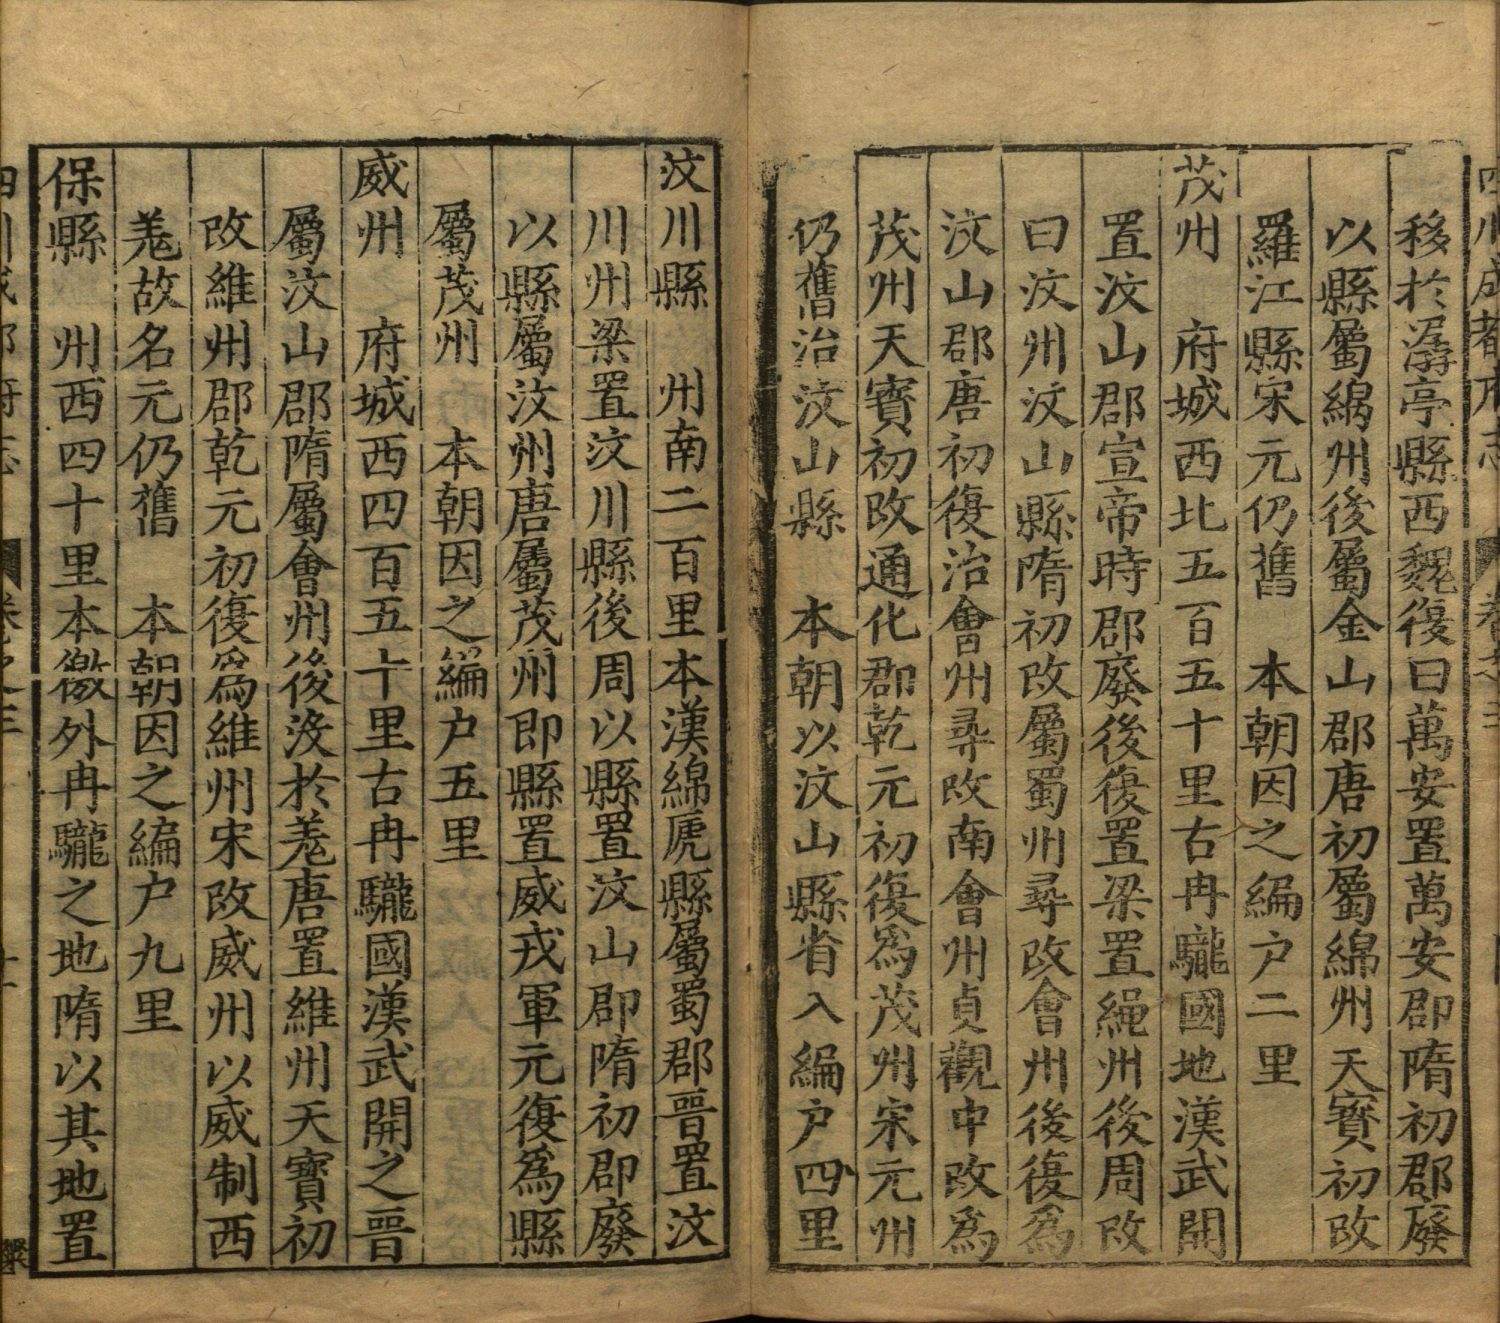 移於潺亭縣西魏復曰萬安置萬安郡隋初郡廢
以縣屬綿州後屬金山郡唐初屬綿州天寶初改
羅江縣宋元仍舊　本朝因之編户二里
茂州　府城西北五百五十里古冉駹國地漢武開
置汶山郡宣帝時郡廢後復置梁置繩州後周改
曰汶州汶山縣隋初改屬蜀州尋改會州後復爲
汶山郡唐初復治會州尋改南會州貞觀中改爲
茂州天寶初改通化郡乾元初復爲茂州宋元州
仍舊治汶山縣　本朝以汶山縣省入編户四里
汶川縣　州南二百里本漢綿虒縣屬蜀郡晉置汶
川州梁置汶川縣後周以縣置汶山郡隋初郡廢
以縣屬汶州唐屬茂州即縣置威戎軍元復爲縣
屬茂州　本朝因之編户五里
威州　府城西四百五十里古冉駹國漢武開之晉
屬汶山郡隋屬會州後没於羗唐置維州天寶初
改維州郡乾元初復爲維州宋改威州以威制西
羗故名元仍舊　本朝因之編户九里
保縣　州西四十里本徼外冉駹之地隋以其地置